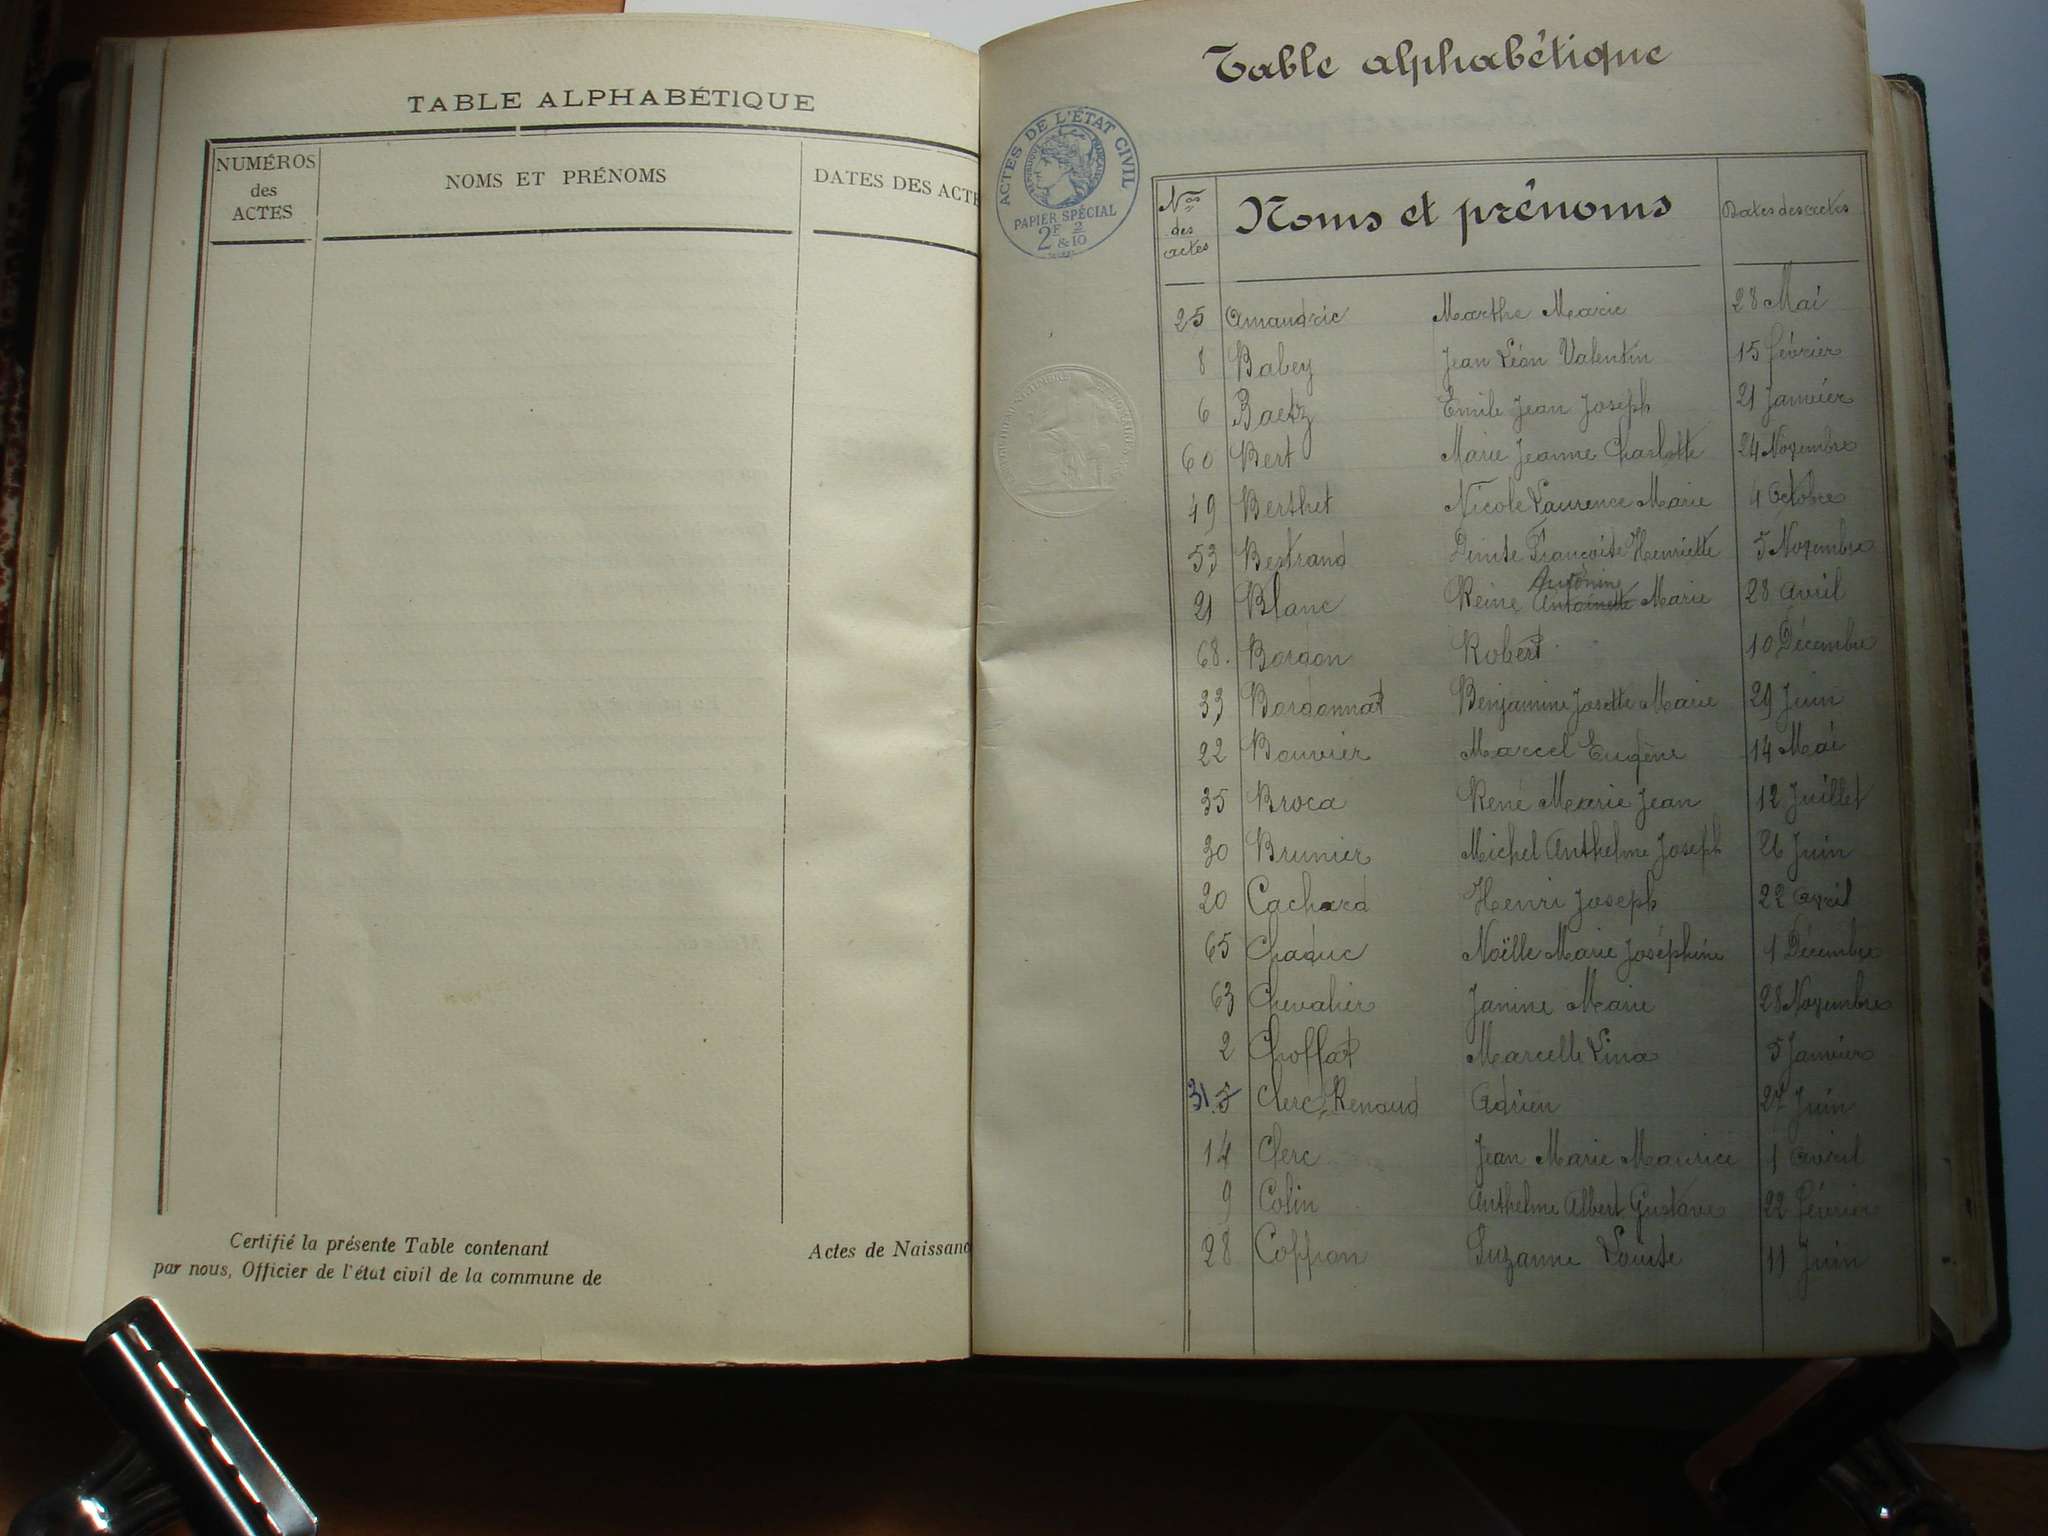 TABLE ALPHABÉTIQUE
NUMÉROS des ACTES
NOMS ET PRÉNOMS
DATES DES ACTE
Certifié la présente Table contenant
Actes de Naissanc
par nous, Officier de l'état civil de la commune de
Table alphabétique
ACTES DE L'ÉTAT CIVIL
PAPIER SPÉCIAL
2F & 2/10
Nos des actes
Noms et prénoms
Dates des actes
25 Amaudric Marthe Marie 28 Mai
8 Babey Jean Léon Valentin 15 Février
6 Baetz Emile Jean Joseph 21 Janvier
60 Bert Marie Jeanne Charlotte 24 Novembre
49 Berthet Nicole Laurence Marie 4 Octobre
53 Bertrand Denise Françoise Henriette 5 Novembre
Antonin
21 Blanc Reine Antoinette Marie 28 Avril
68. Bordon Robert 10 Décembre
33 Bordonnat Benjamine Josette Marie 29 Juin
22 Bouvier Marcel Eugène 14 Mai
35 Broca René Marie Jean 12 Juillet
30 Brunier Michel Anthelme Joseph 26 Juin
20 Cachard Henri Joseph 22 Avril
65 Chaduc Noëlle Marie Joséphine 1 Décembre
63 Chevalier Janine Marie 28 Novembre
2 Choffat Marcelle Lina 5 Janvier
31 Clerc Renaud Adrien 27 Juin
14 Clerc Jean Marie Maurice 1 Avril
9 Colin Anthelme Albert Gustave 22 Février
28 Coppon Suzanne Louise 11 Juin